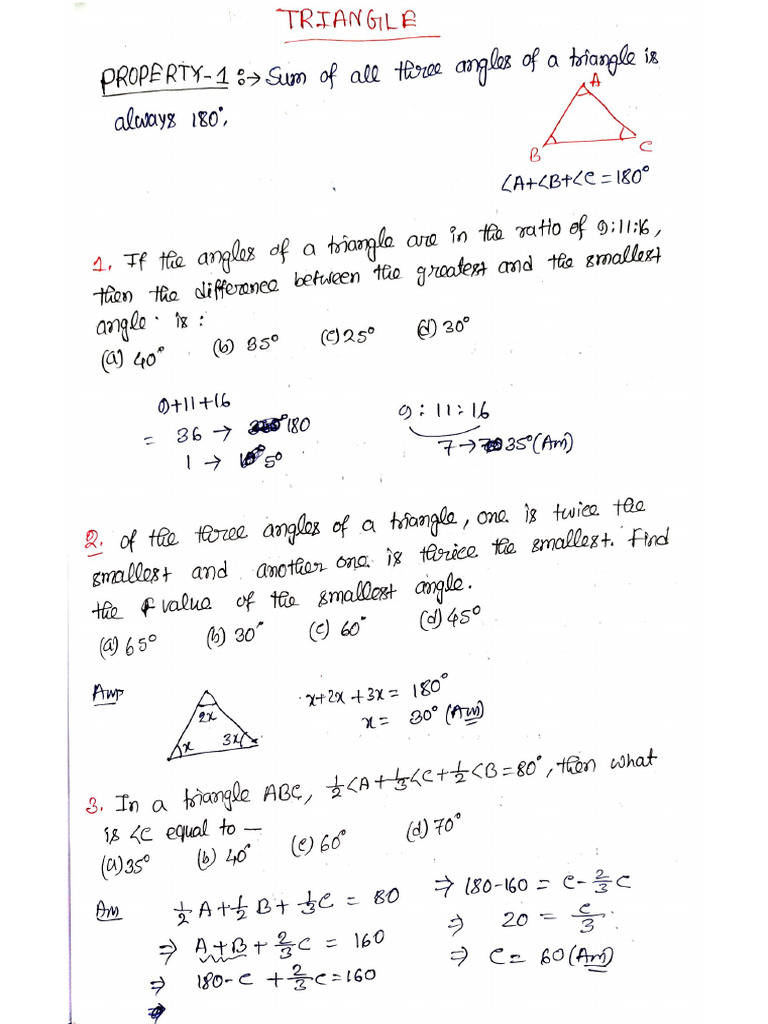 TRIANGLE
PROPERTY-1 :→ Sum of all three angles of a triangle is
always 180°.
A
B
C
∠A+∠B+∠C=180°
1. If the angles of a triangle are in the ratio of 9:11:16,
then the difference between the greatest and the smallest
angle is:
(a) 40° (b) 35° (c) 25° (d) 30°
9+11+16
= 36 → 180
1 → 5°
9 : 11 : 16
7 → 35° (Am)
2. Of the three angles of a triangle, one is twice the
smallest and another one is thrice the smallest. Find
the value of the smallest angle.
(a) 65° (b) 30° (c) 60° (d) 45°
Amp
2x
x
3x
x+2x+3x = 180°
x = 30° (Am)
3. In a triangle ABC, 1/2∠A+1/3∠C+1/2∠B=80°, then what
is ∠C equal to —
(a) 35° (b) 40° (c) 60° (d) 70°
Am
1/2 A+1/2 B+1/3 C = 80
⇒ A+B+2/3 C = 160
⇒ 180-C+2/3 C=160
⇒
⇒ 180-160 = C-2/3 C
⇒ 20 = C/3
⇒ C= 60 (Am)